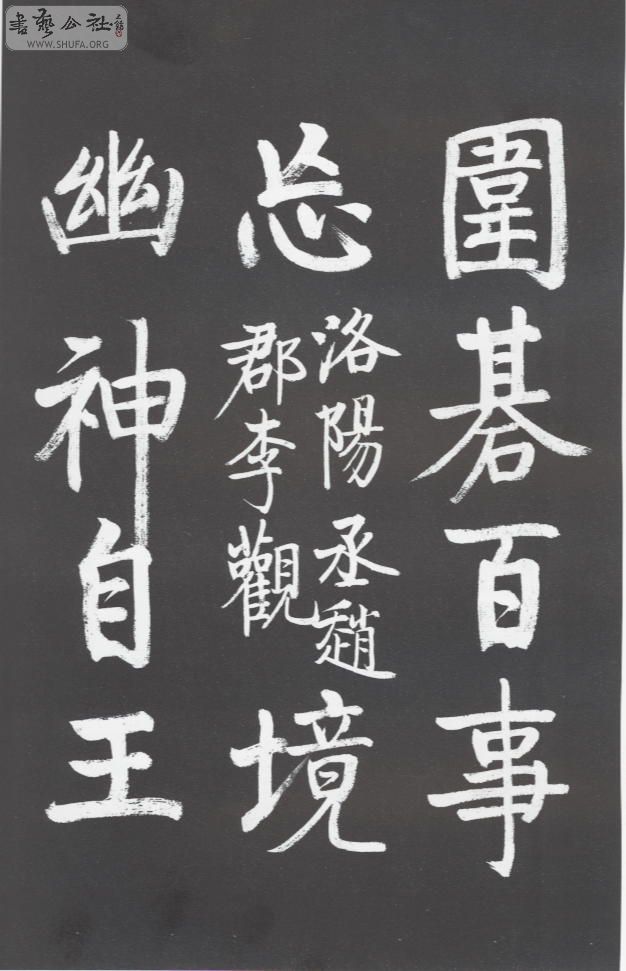 書藝公社
WWW.SHUFA.ORG
圍碁百事
忘
洛陽丞趙
郡李觀
境
幽神自王